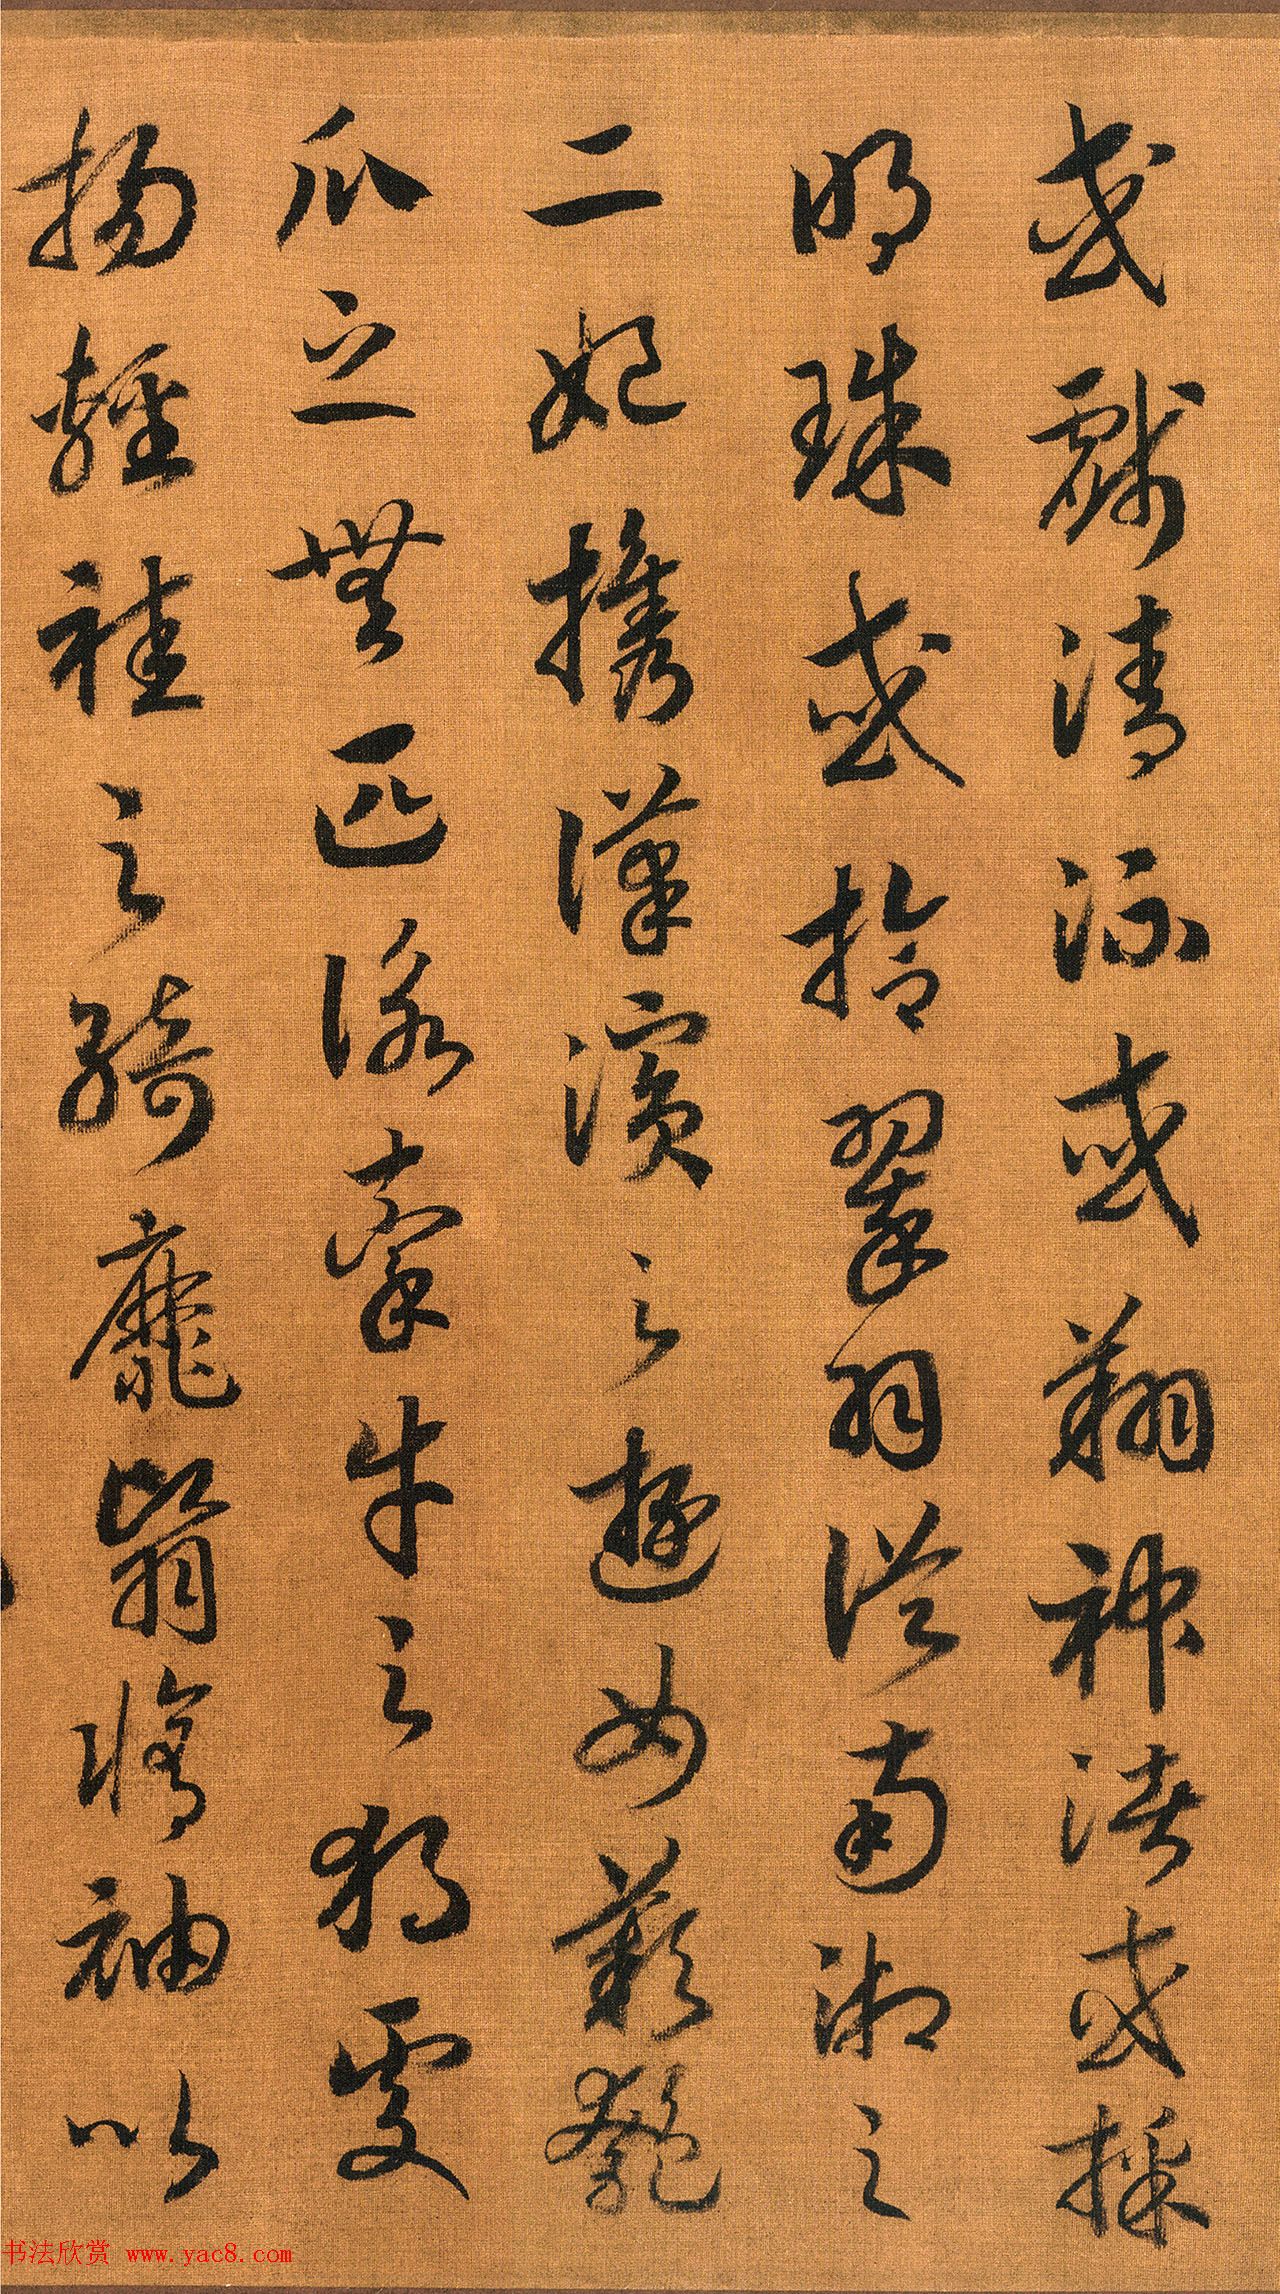 或戲清流或翔神渚或採
明珠或拾翠羽從南湘之
二妃攜漢濱之遊女歎匏
瓜之無匹詠牽牛之獨處
揚輕袿之綺靡翳脩袖以
书法欣赏 www.yac8.com